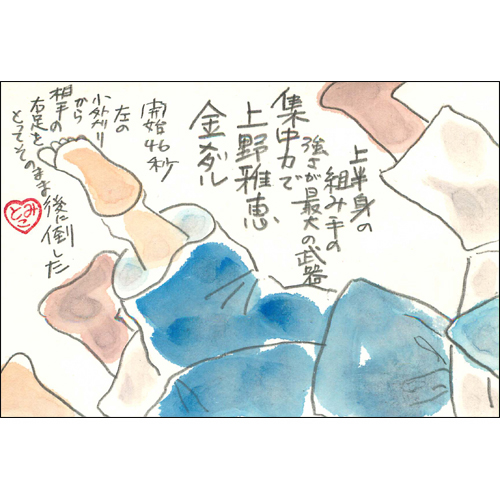 上半身の
組み手の
強さが最大の武器
集中力で
上野雅恵
金メダル
開始46秒
左の
小外ガリ
から
相手の
右足を
とってそのまま後に倒した
とみこ